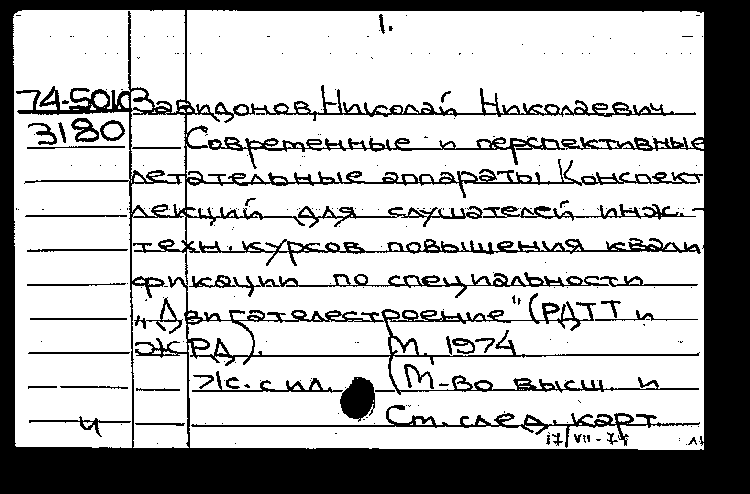 1.
74-501
3180
Завидонов, Николай Николаевич.
Современные и перспективные
летательные аппараты. Конспект
лекций для слушателей инж.-
техн. курсов повышения квали
фикации по специальности
„Двигателестроение" (РДТТ и
ЖРД). М., 1974.
71с. с ил. (М-во высш. и
См. след. карт.